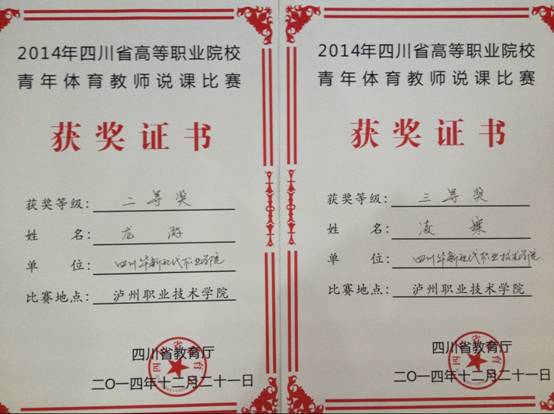 2014年四川省高等职业院校
青年体育教师说课比赛
获奖证书
获奖等级：二等奖
姓 名：龙游
单 位：四川华新现代职业学院
比赛地点：泸州职业技术学院
四川省教育厅
二〇一四年十二月二十一日
2014年四川省高等职业院校
青年体育教师说课比赛
获奖证书
获奖等级：三等奖
姓 名：凌
单 位：四川华新现代职业技术学院
比赛地点：泸州职业技术学院
四川省教育厅
二〇一四年十二月二十一日